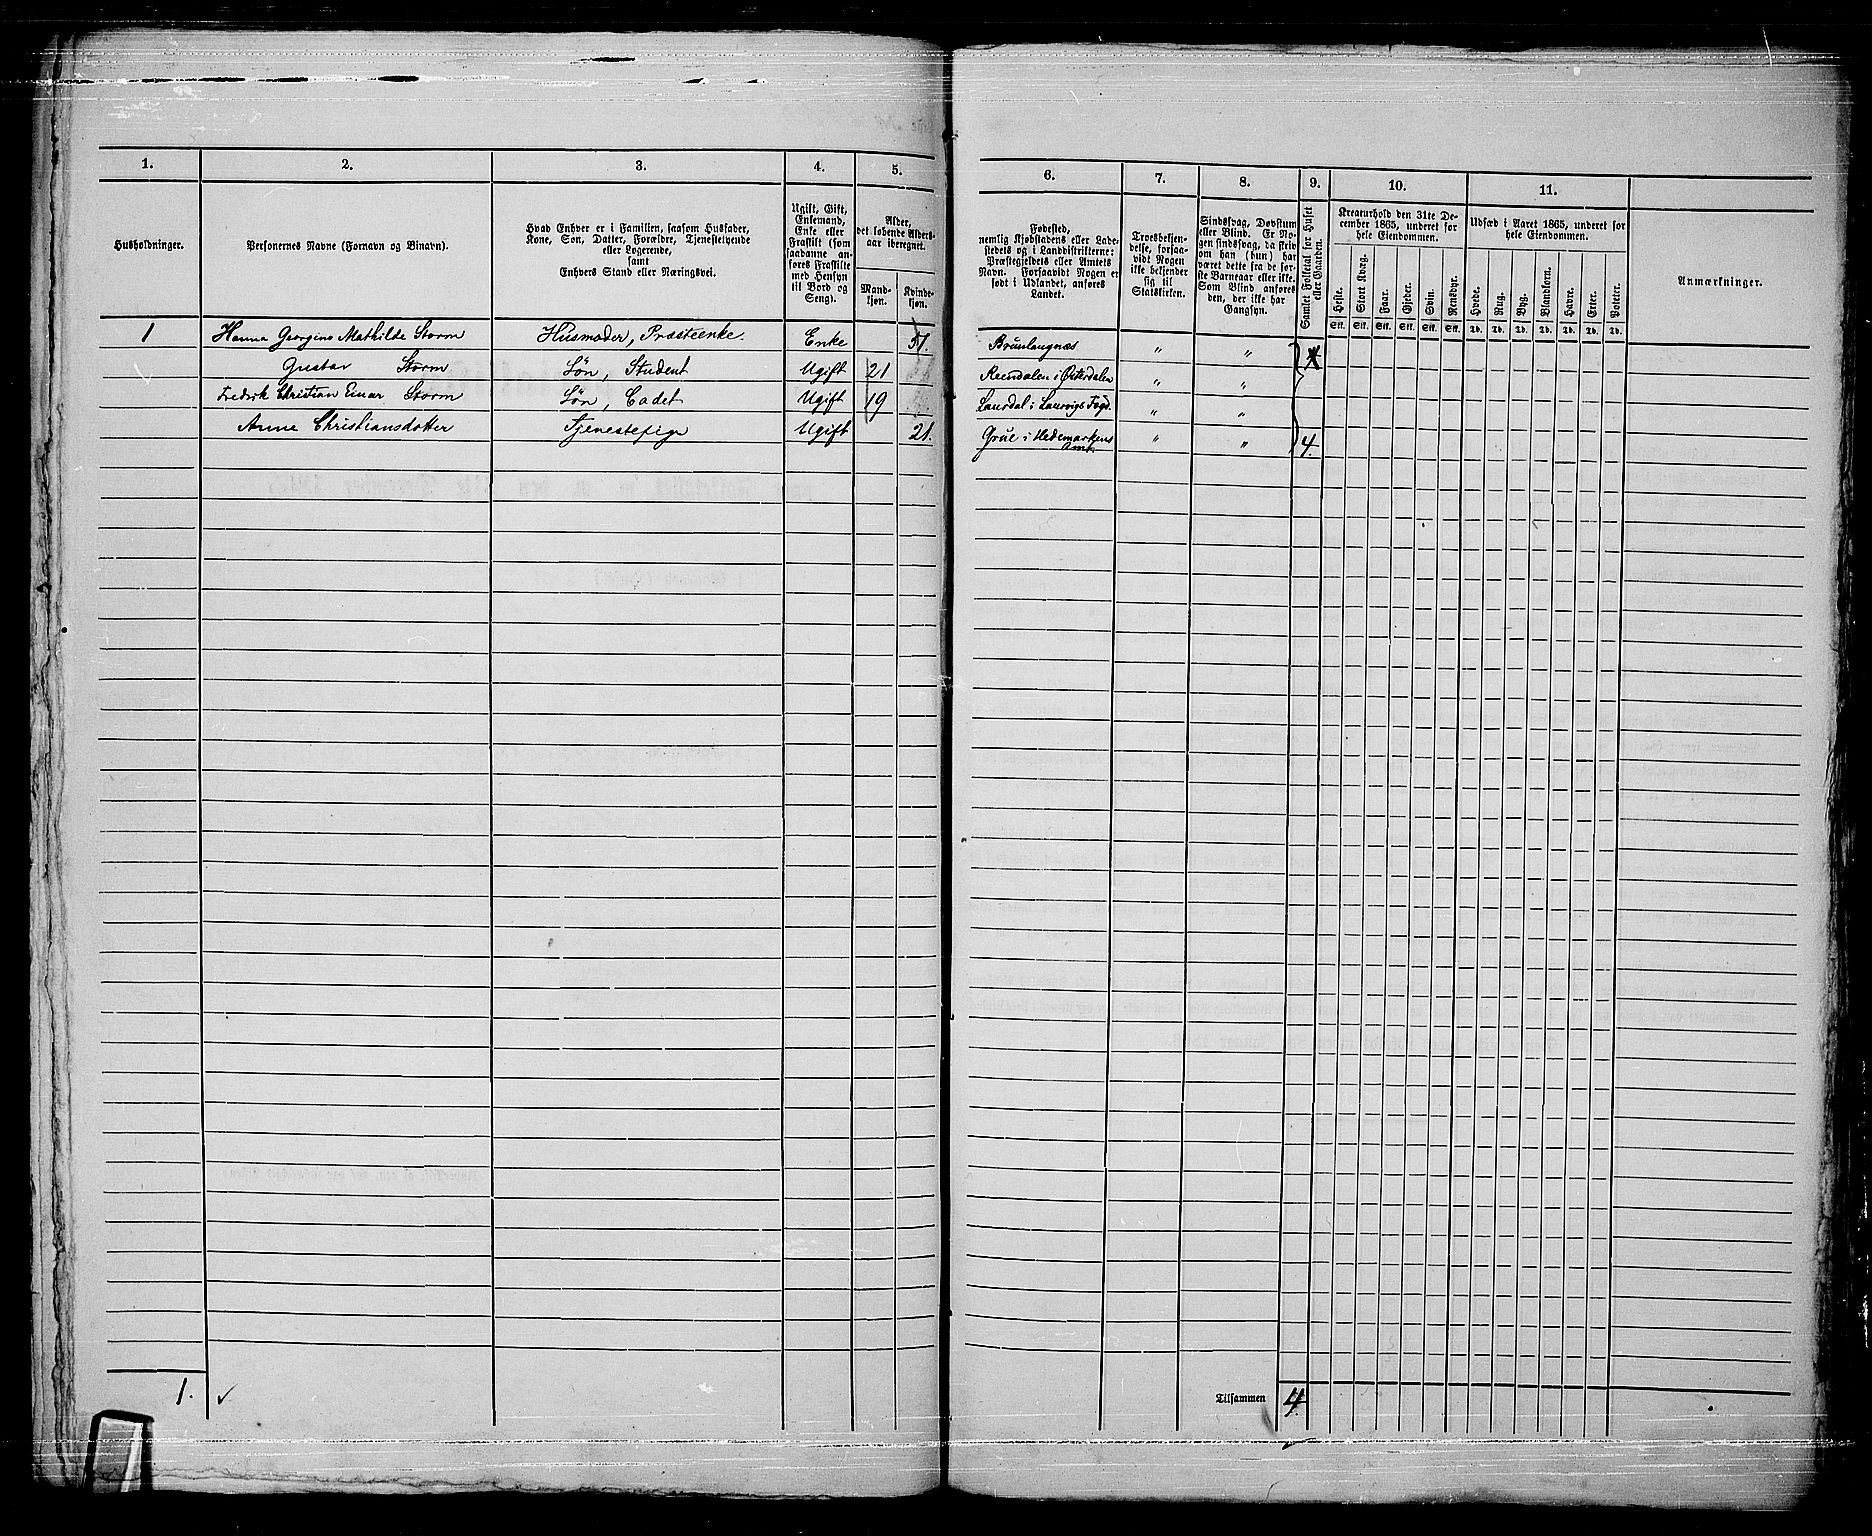 1. 2. 3. 4. 5. 6. 7. 8. 9. 10. 11.
Husholdninger.
Personernes Navne (Fornavn og Binavn).
Hvad Enhver er i Familien, saasom Husfader,
Kone, Søn, Datter, Forældre, Tjenestetyende
eller Logerende,
samt
Enhvers Stand eller Næringsvei.
Ugift, Gift,
Enkemand,
Enke eller
Fraskilt (som
saadanne an-
føres Fraskilte
med Hensyn
til Bord og
Seng).
Alder,
det løbende Alders-
aar iberegnet.
Mand-
kjøn.
Kvinde-
kjøn.
Fødested,
nemlig Kjøbstadens eller Lade-
stedets og i Landdistrikterne:
Præstegjeldets eller Amtets
Navn. Forsaavidt Nogen er
født i Udlandet, anføres
Landet.
Troesbekjen-
delse, forsaa-
vidt Nogen
ikke bekjender
sig til
Statskirken.
Sindssvag, Døvstum
eller Blind. Er No-
gen sindssvag, da skriv
om han (hun) har
været dette fra de før-
ste Barneaar eller ikke.
Som Blind anføres
den, der ikke har
Gangsyn.
Samlet Folketal for Huset
eller Gaarden.
Kreaturhold den 31te De-
cember 1865, underet for
hele Eiendommen.
Heste. Stort Kvæg. Faar. Gjeder. Svin. Rensdyr.
Stk. Stk. Stk. Stk. Stk. Stk.
Udsæd i Aaret 1865, underet for
hele Eiendommen.
Hvede. Rug. Byg. Blandkorn. Havre. Erter. Poteter.
Td. Td. Td. Td. Td. Td. Td.
Anmærkninger.
1 Hanna Georgine Mathilde Storm Husmoder, Præsteenke. Enke 51. Brunlaugnæs " "
Gustav Storm Søn, Student Ugift 21 Rendalen i Østerdalen " "
Fredrik Christian Einar Storm Søn, Cadet Ugift 19 Laurdal i Laurvigs Fogd. " "
Anne Christiansdatter Tjenestepige Ugift 21. Grue i Hedemarkens " " 4.
Amt.
1. ✓ Tilsammen 4